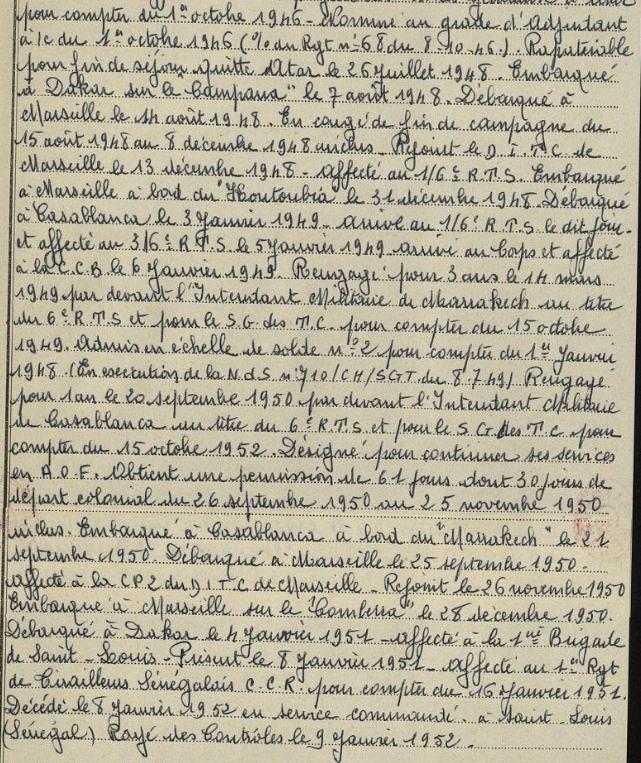 pour compter du 1er octobre 1946 - Nommé au grade d'Adjudant
à/c du 1er octobre 1946 (% du Rgt n° 68 du 8-10-46.). Rapatriable
pour fin de séjour quitte Atar le 26 Juillet 1948. Embarqué
à Dakar sur le "Campana" le 7 août 1948. Débarqué à
Marseille le 14 août 1948. En congé de fin de campagne du
15 août 1948 au 8 décembre 1948 inclus. Rejoint le D.I.T.C. de
Marseille le 13 décembre 1948 - affecté au 1/6e R.T.S. Embarqué
à Marseille à bord du "Koutoubia" le 31 décembre 1948. Débarqué
à Casablanca le 3 Janvier 1949. arrivé au 1/6e R.T.S. le dit jour
et affecté au 3/6e R.T.S. le 5 Janvier 1949 arrivé au Corps et affecté
à la C.C.B. le 6 Janvier 1949. Rengagé pour 3 ans le 14 mars
1949 par devant l'Intendant Militaire de Marrakech au titre
du 6e R.T.S et pour le S.G. des T.C. pour compter du 15 octobre
1949. Admis en échelle de solde n° 2 pour compter du 1er Janvier
1948. (En exécution de la N.d.S n° 710/CH/SGT du 8.7.49) Rengagé
pour 1 an le 20 septembre 1950 par devant l'Intendant Militaire
de Casablanca au titre du 6e R.T.S et pour le S.G. des T.C. pour
compter du 15 octobre 1952. Désigné pour continuer ses services
en A.O.F. Obtient une permission de 61 jours dont 30 jours de
départ colonial du 26 septembre 1950 au 25 novembre 1950
inclus. Embarqué à Casablanca à bord du "Marrakech" le 21
septembre 1950. Débarqué à Marseille le 25 septembre 1950 -
affecté à la CP2 du D.I.T.C de Marseille - Rejoint le 26 novembre 1950
Embarqué à Marseille sur le le 28 décembre 1950.
Débarqué à Dakar le 4 Janvier 1951 - affecté à la 1ère Brigade
de Saint-Louis - Présent le 8 Janvier 1951 - affecté au 1er Rgt
de Tirailleurs Sénégalais C.C.R. pour compter du 16 Janvier 1951.
Décédé le 8 Janvier 1952 en service commandé. à Saint-Louis
(Sénégal.) Rayé des Contrôles le 9 Janvier 1952.